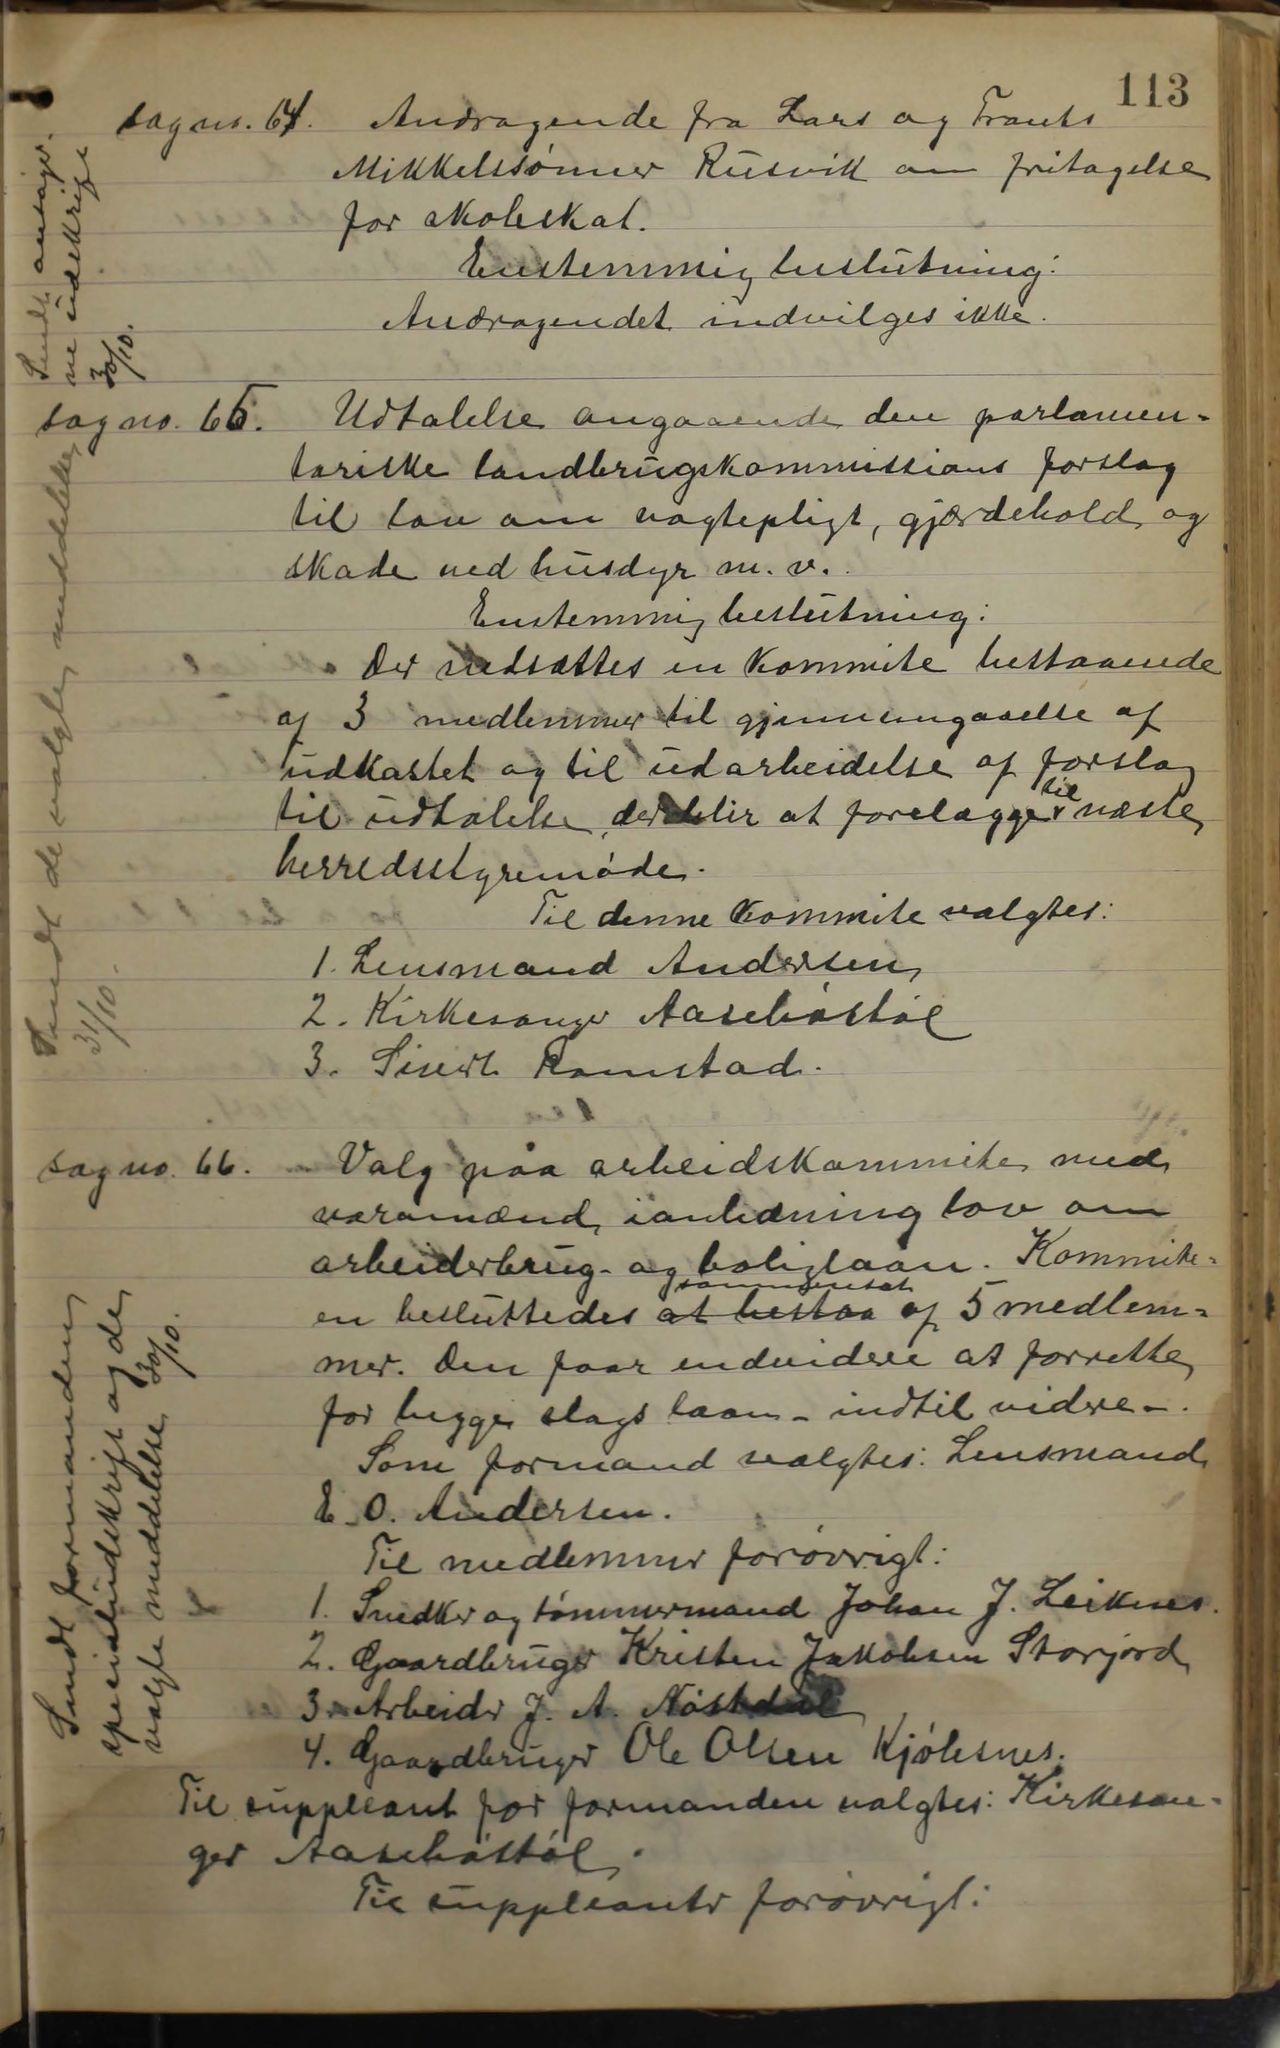 113
sag no. 64. Andragende fra Lars og Frants
Mikkelsønner Rusvik om fritagelse
for skoleskat.
Enstemmig beslutning:
Andragendet indvilges ikke.
Sendt ansøger-
ne udskrift
30/10.
sag no. 65. Udtalelse angaaende den parlamen-
tariske landbrugskommissions forslag
til lov om vogtepligt, gjærdehold og
skade ved husdyr m. v.
Enstemmig beslutning:
Der nedsættes en kommite bestaaende
af 3 medlemmer til gjennemgaaelse af
udkastet og til udarbeidelse af forslag
til udtalelse, der blir at forelægges til næste
herredsstyremøde.
Til denne kommite valgtes:
1. Lensmand Andersen
2. Kirkesanger Aasebøstøl
3. Sivert Ramstad.
Sendt de valgte meddelelse
31/10.
sag no. 66. Valg paa arbeidskommite med
varamænd ianledning lov om
arbeiderbrug- og boliglaan. Kommite-
en besluttedes at bestaa sammensat af 5 medlem-
mer. Den faar endvidere at forrette
for begge slags laan - indtil videre -.
Som formand valgtes: Lensmand
E. O. Andersen.
Til medlemmer forøvrigt:
1. Snedker og tømmermand Johan J. Leiknes.
2. Gaardbruger Kristen Jakobsen Storjord
3. Arbeider J. A. Nøstdal
4. Gaardbruger Ole Olsen Kjølesnes.
Til suppleant for formanden valgtes: Kirkesan-
ger Aasebøstøl.
Til suppleanter forøvrigt:
Sendt formanden
specialudskrift og de
valgte meddelelse 30/10.